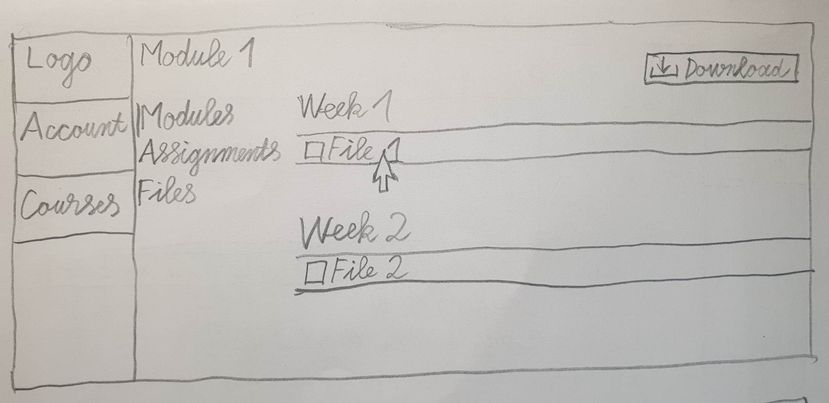 Logo
Account
Courses
Module 1
Modules
Assignments
Files
Download
Week 1
File 1
Week 2
File 2